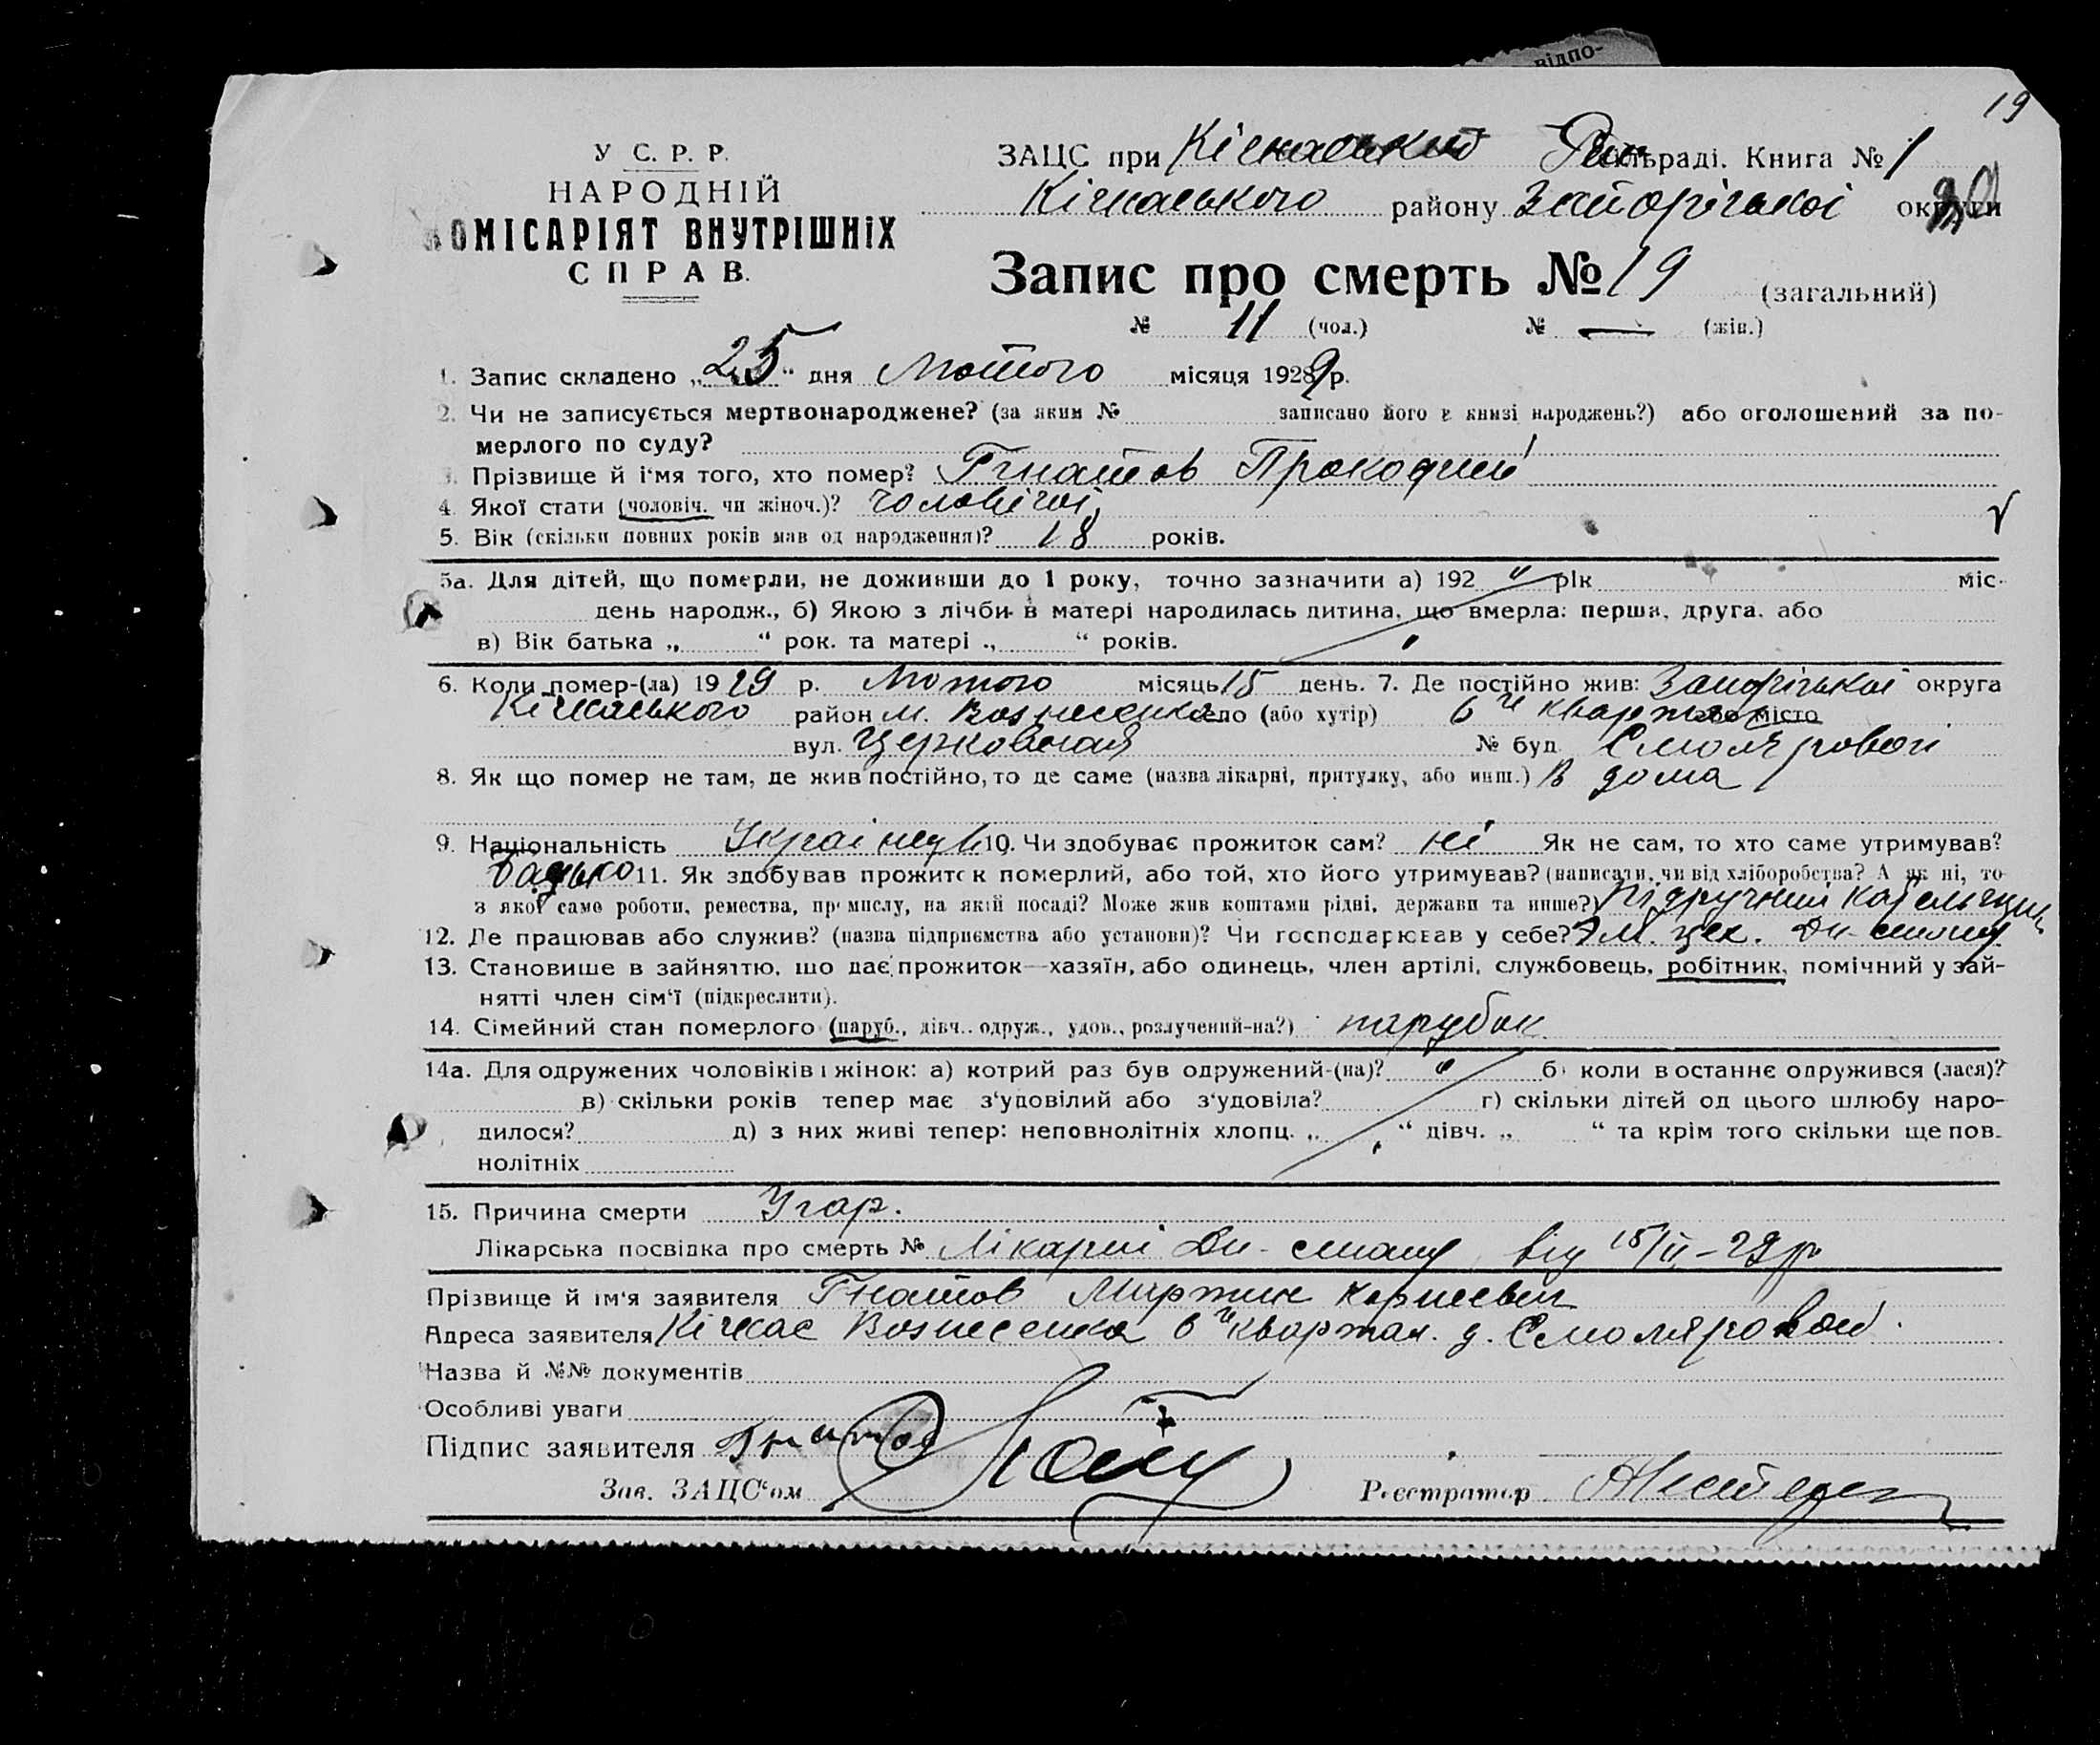 відпо-
19
У С. Р. Р.
НАРОДНІЙ
КОМІСАРІЯТ ВНУТРІШНІХ
СПРАВ.
ЗАЦС при Кічкаський Рик сільраді. Книга № 1
Кічкаського району Запорізької округи
Запис про смерть № 19 (загальний)
№ 11 (чол.) № — (жін.)
1. Запис складено „25“ дня Лютого місяця 1929 р.
2. Чи не записується мертвонароджене? (за яким № записано його в книзі народжень?) або оголошений за по-
мерлого по суду?
3. Прізвище й і'мя того, хто помер? Гнатов Прокофий
4. Якої стати (чоловіч. чи жіноч.)? чоловічої
5. Вік (скільки повних років мав од народження)? 18 років.
5а. Для дітей, що померли, не доживши до 1 року, точно зазначити а) 192 " рік міс.
день народж., б) Якою з лічби в матері народилась дитина, що вмерла: перша, друга, або
в) Вік батька „ “ рок. та матері „ “ років.
6. Коли помер-(ла) 1929 р. Лютого місяць 15 день. 7. Де постійно жив: Запорізької округа
Кічкаського район м. Вознесенка село (або хутір) 6й квартал або місто
вул. Церковная № буд Смолярової
8. Як що помер не там, де жив постійно, то де саме (назва лікарні, притулку, або инш.) В дома
9. Національність Украінець 10. Чи здобуває прожиток сам? ні Як не сам, то хто саме утримував?
Батько 11. Як здобував прожиток померлий, або той, хто його утримував? (написати, чи від хліборобства? А як ні, то
з якої саме роботи, ремества, промислу, на якій посаді? Може жив коштами рідні, держави та инше?) Підручний котельщик
12. Де працював або служив? (назва підприємства або установи)? Чи господарював у себе? цех. Дн-стану
13. Становише в зайняттю, що дає прожиток—хазяїн, або одинець, член артілі, службовець, робітник, помічний у зай-
нятті член сім'ї (підкреслити).
14. Сімейний стан померлого (паруб., дівч., одруж., удов., розлучений-на?) парубок
14а. Для одружених чоловіків і жінок: а) котрий раз був одружений-(на)? " б) коли востаннє одружився (лася)?
в) скільки років тепер має з'удовілий або з'удовіла? г) скільки дітей од цього шлюбу наро-
дилося? д) з них живі тепер: неповнолітніх хлопц. „ “ дівч. „ “ та крім того скільки ще пов-
нолітніх
15. Причина смерти Угар.
Лікарська посвідка про смерть № Лікарні Дн-стану від 15/II-29 р
Прізвище й ім'я заявителя Гнатов Мартин Корнеевич
Адреса заявителя Кічкас Вознесенка 6й квартал. д. Смоляровой.
Назва й №№ документів
Особливі уваги
Підпис заявителя Гнатов
Зав. ЗАЦС'ом Реєстратор